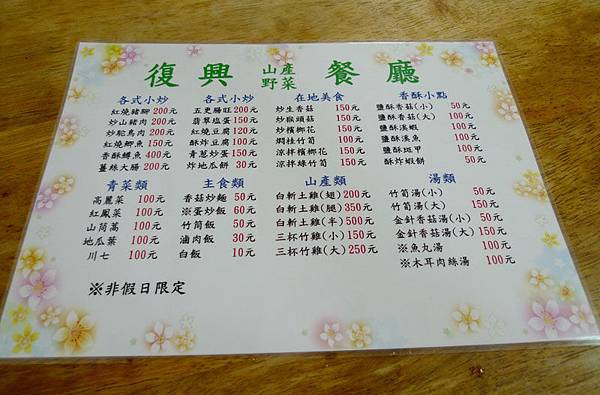 復興 山產野菜 餐廳
各式小炒
紅燒豬腳 200元
炒山豬肉 200元
炒鴕鳥肉 200元
紅燒鯽魚 150元
香酥鱒魚 400元
薑絲大腸 200元
各式小炒
五更腸旺 200元
翡翠塩蛋 150元
紅燒豆腐 120元
酥炸豆腐 100元
青蔥炒蛋 150元
炸地瓜餅 30元
在地美食
炒生香菇 150元
炒猴頭菇 150元
炒檳榔花 150元
燜桂竹筍 100元
涼拌檳榔花 150元
涼拌綠竹筍 100元
香酥小點
鹽酥香菇(小) 50元
鹽酥香菇(大) 100元
鹽酥溪蝦 100元
鹽酥溪魚 100元
鹽酥斑甲 100元
酥炸蝦餅 50元
青菜類
高麗菜 100元
紅鳳菜 100元
山茼蒿 100元
地瓜葉 100元
川七 100元
主食類
香菇炒麵 50元
※蛋炒飯 60元
竹筒飯 50元
滷肉飯 30元
白飯 10元
山產類
白斬土雞(翅) 200元
白斬土雞(腿) 350元
白斬土雞(半) 500元
三杯竹雞(小) 150元
三杯竹雞(大) 250元
湯類
竹筍湯(小) 50元
竹筍湯(大) 150元
金針香菇湯(小) 50元
金針香菇湯(大) 150元
※魚丸湯 100元
※木耳肉絲湯 100元
※非假日限定